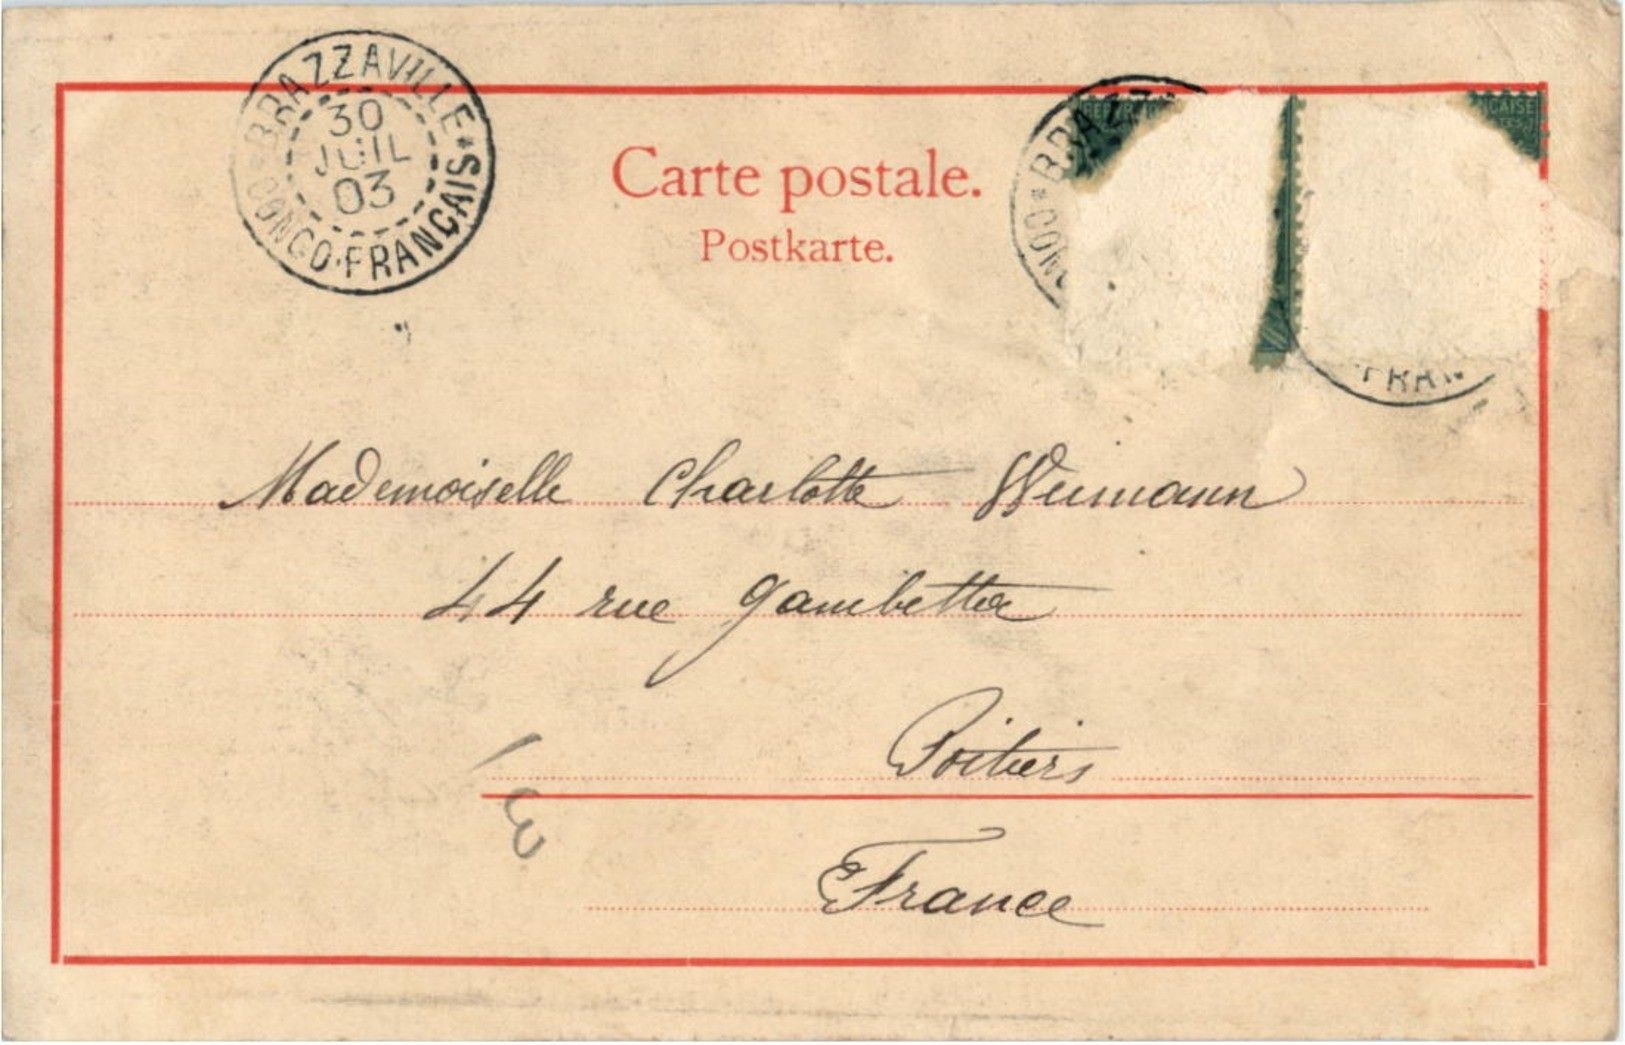 BRAZZAVILLE
30
JUIL
03
CONGO·FRANÇAIS
Carte postale.
Postkarte.
BRAZZ
CON
FRAN
CAISE
Mademoiselle Charlotte Weimann
44 rue Gambetta
Poitiers
France